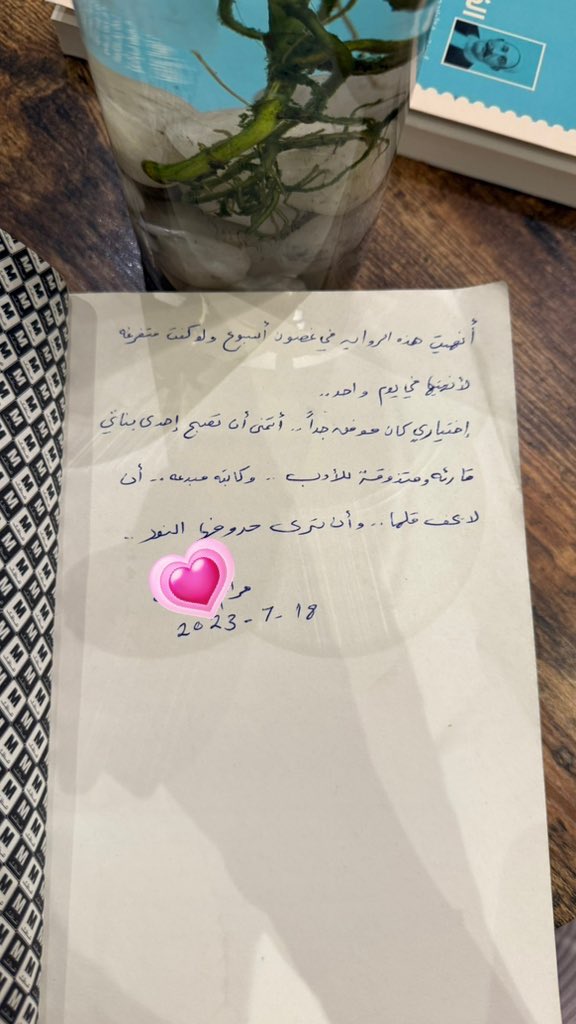 أنهيت هذه الروايه في غضون أسبوع ولو كنت متفرغه
لأنهيتها في يوم واحد..
إختياري كان موفق جداً.. أتمنى أن تصبح إحدى بناتي
قارئه ومتذوقة للأدب .. وكاتبه مبدعه .. أن
لا يجف قلمها .. وأن ترى حروفها النور ..
2023-7-18